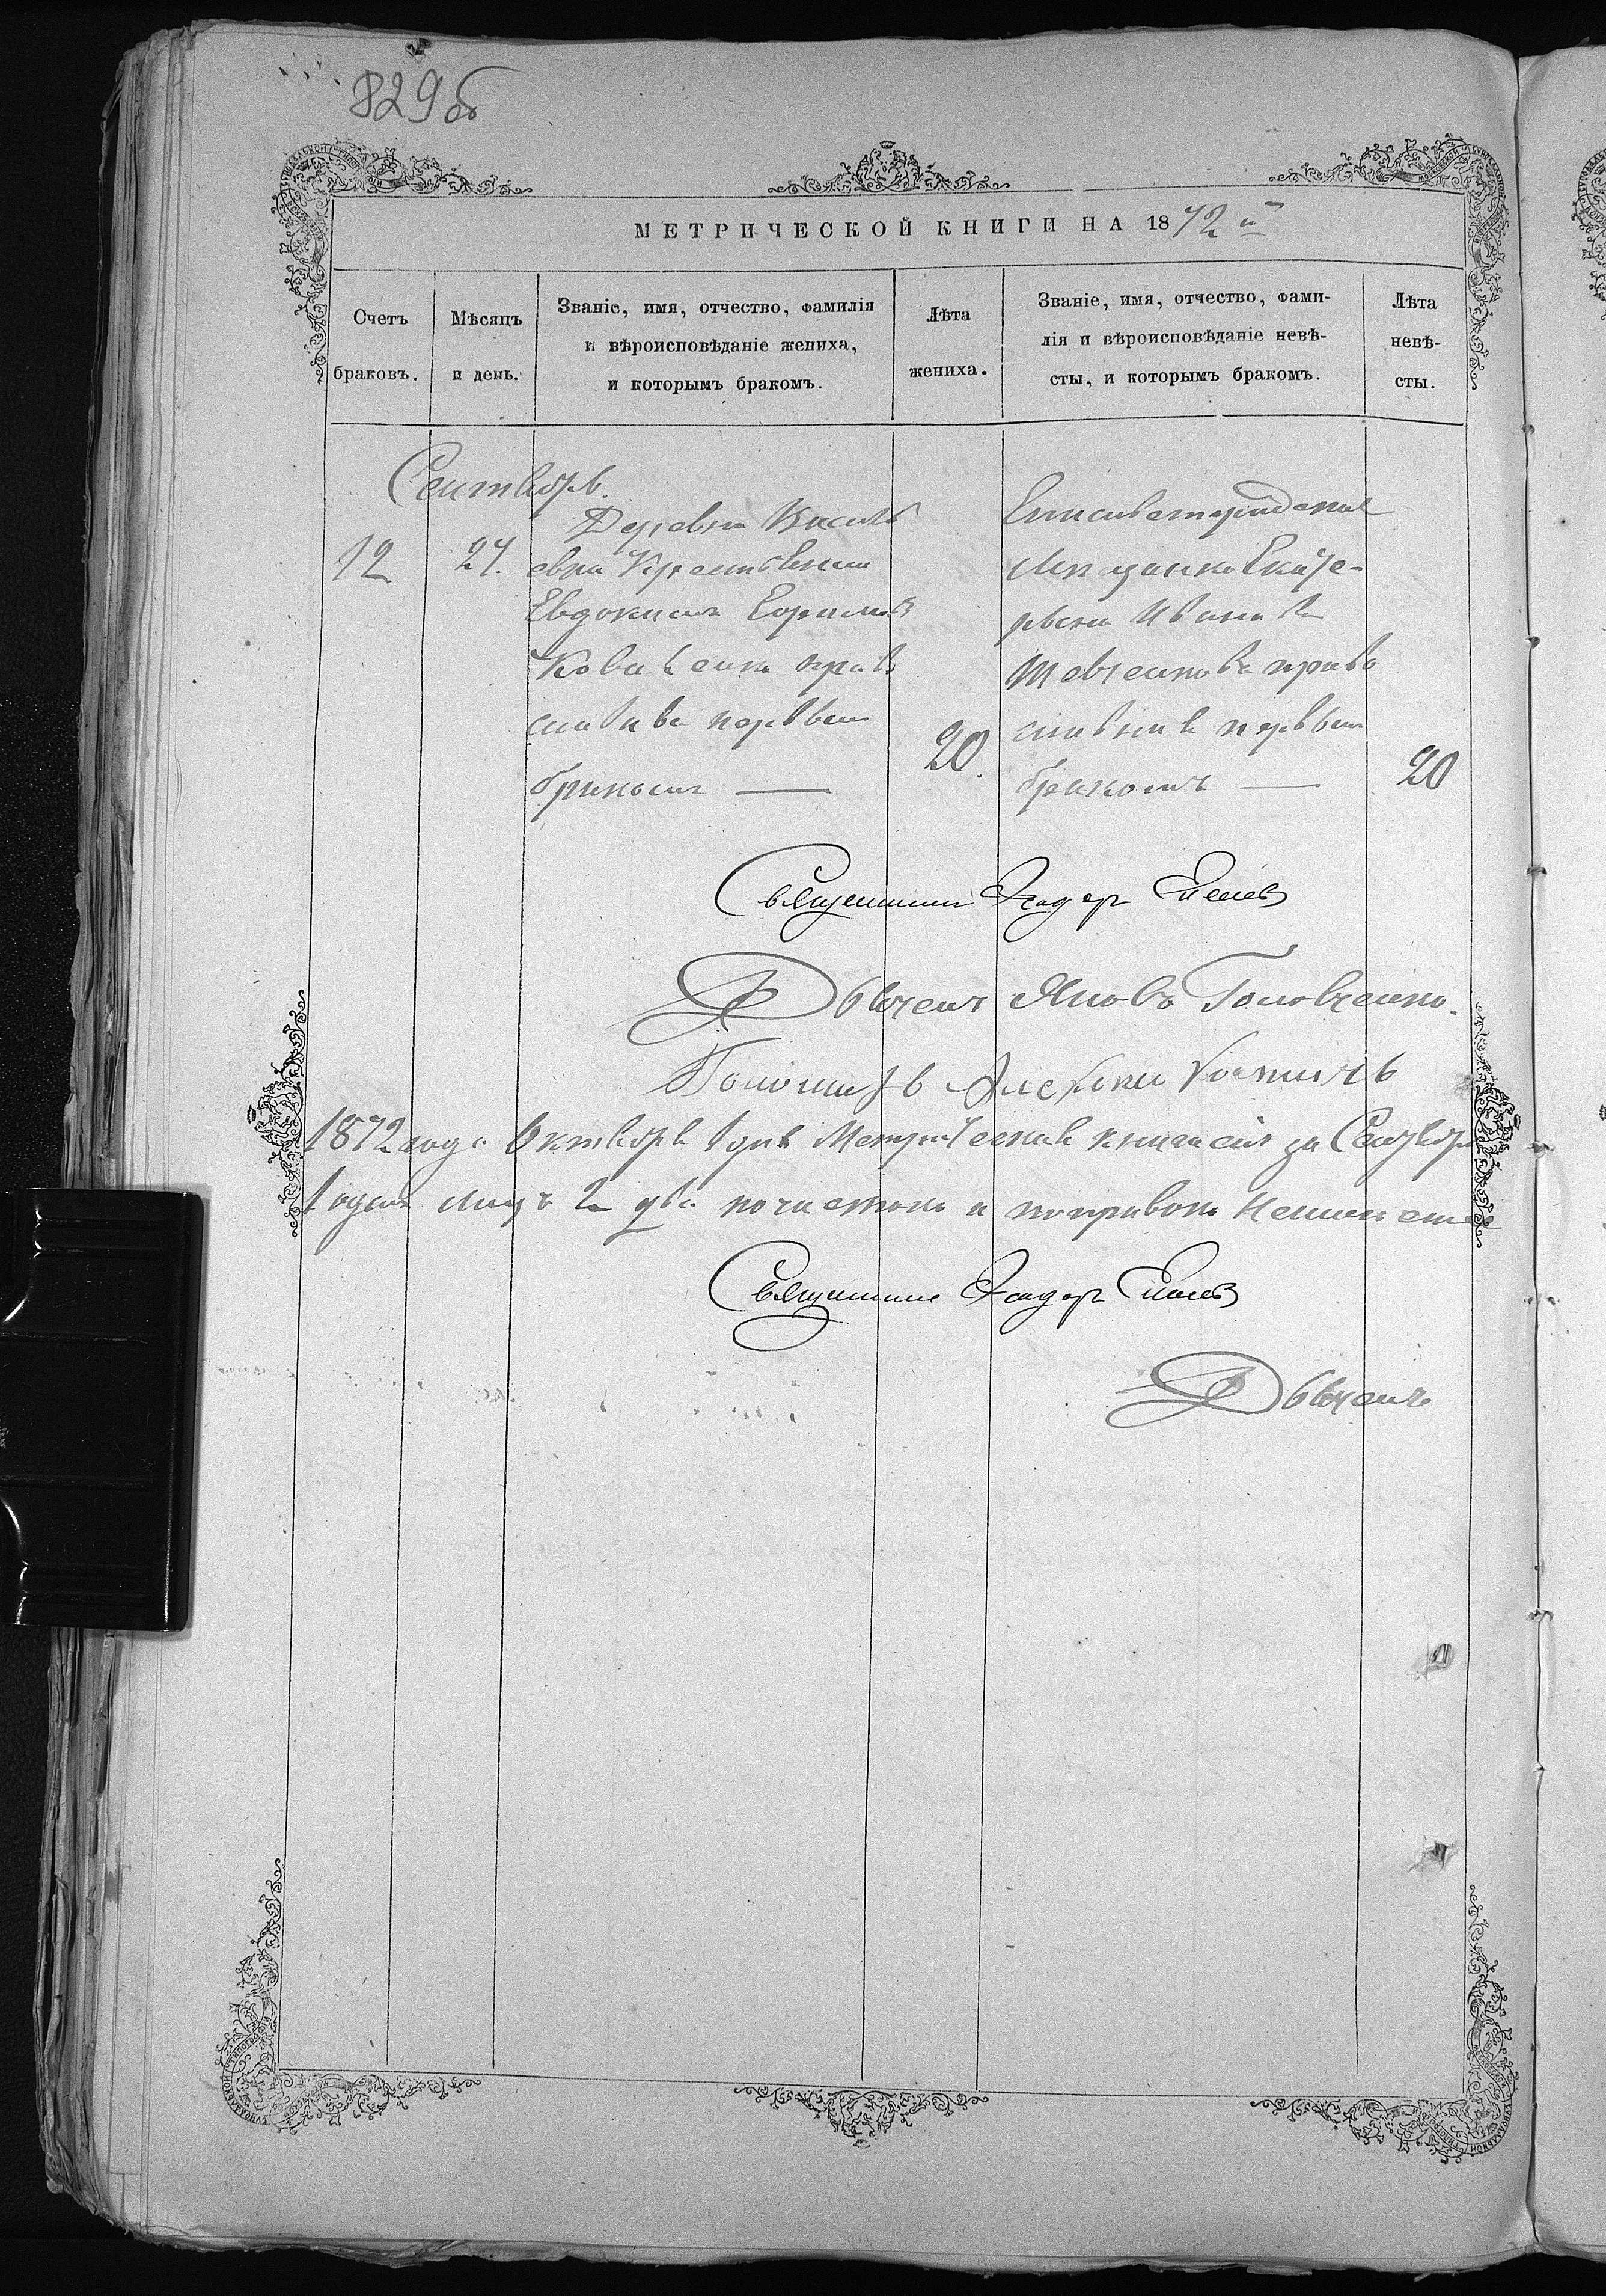 829 об
МЕТРИЧЕСКОЙ КНИГИ НА 1872 й
Счетъ браковъ.
Мѣсяцъ и день.
Званіе, имя, отчество, фамилія
и вѣроисповѣданіе жениха,
и которымъ бракомъ.
Лѣта жениха.
Званіе, имя, отчество, фами-
лія и вѣроисповѣданіе невѣ-
сты, и которымъ бракомъ.
Лѣта невѣ-
сты.
Сентябрь.
12
27.
Деревни
евки Крестьянин
Евдокимъ
Коваленко право
славнаго первым
бракомъ —
20.
Елисаветградская
Мещанка Екате-
рина Иванова
Шевченкова право
славная первым
бракомъ —
20
Священник Ѳеодор
Дьячекъ Яковъ Головченко.
Пономарь Алексей
1872 года Октября 1 дня Метрическая книга сія за Сентябрь
1 один листъ 2 два почистокъ и поправокъ
Священник Ѳеодор
Дьячекъ